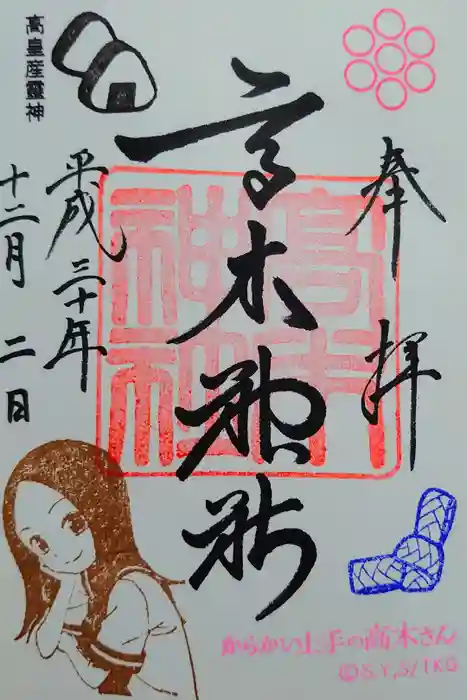 奉拝
高木神社
高木神社
高皇産霊神
平成三十年
十二月二日
からかい上手の高木さん
©S.Y,S/TKG